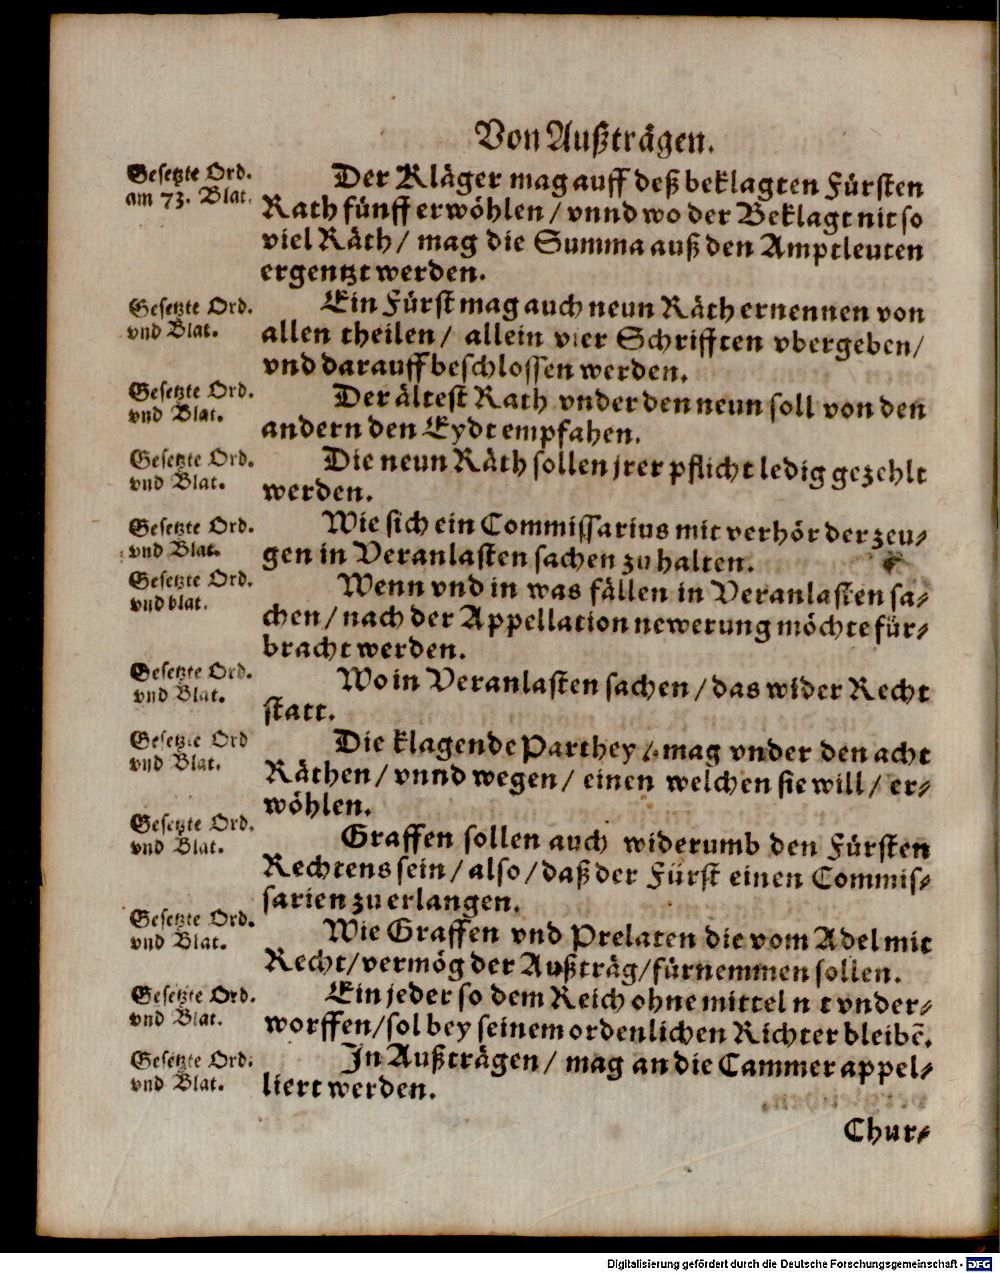 Von Außträgen.
Gesetzte Ord.
am 73. Blat.
Der Kläger mag auff deß beklagten Fürsten
Rath fünff erwöhlen / vnnd wo der Beklagt nit so
viel Räth / mag die Summa auß den Amptleuten
ergentzt werden.
Gesetzte Ord.
vnd Blat.
Ein Fürst mag auch neun Räth ernennen von
allen theilen / allein vier Schrifften vbergeben /
vnd darauff beschlossen werden.
Gesetzte Ord.
vnd Blat.
Der ältest Rath vnder den neun soll von den
andern den Eydt empfahen.
Gesetzte Ord.
vnd Blat.
Die neun Räth sollen jrer pflicht ledig gezehlt
werden.
Gesetzte Ord.
vnd Blat.
Wie sich ein Commissarius mit verhör der zeu⸗
gen in Veranlasten sachen zu halten.
Gesetzte Ord.
vnd blat.
Wenn vnd in was fällen in Veranlasten sa⸗
chen / nach der Appellation newerung möchte für⸗
bracht werden.
Gesetzte Ord.
vnd Blat.
Wo in Veranlasten sachen / das wider Recht
statt.
Gesetzte Ord
vnd Blat.
Die klagende Parthey / mag vnder den acht
Räthen / vnnd wegen / einen welchen sie will / er⸗
wöhlen.
Gesetzte Ord.
vnd Blat.
Graffen sollen auch widerumb den Fürsten
Rechtens sein / also / daß der Fürst einen Commis⸗
sarien zu erlangen.
Gesetzte Ord.
vnd Blat.
Wie Graffen vnd Prelaten die vom Adel mit
Recht / vermög der Außträg / fürnemmen sollen.
Gesetzte Ord.
vnd Blat.
Ein jeder so dem Reich ohne mittel n t vnder⸗
worffen / sol bey seinem ordenlichen Richter bleibē.
Gesetzte Ord.
vnd Blat.
In Außträgen / mag an die Cammer appel⸗
liert werden.
Chur⸗
Digitalisierung gefördert durch die Deutsche Forschungsgemeinschaft - DFG